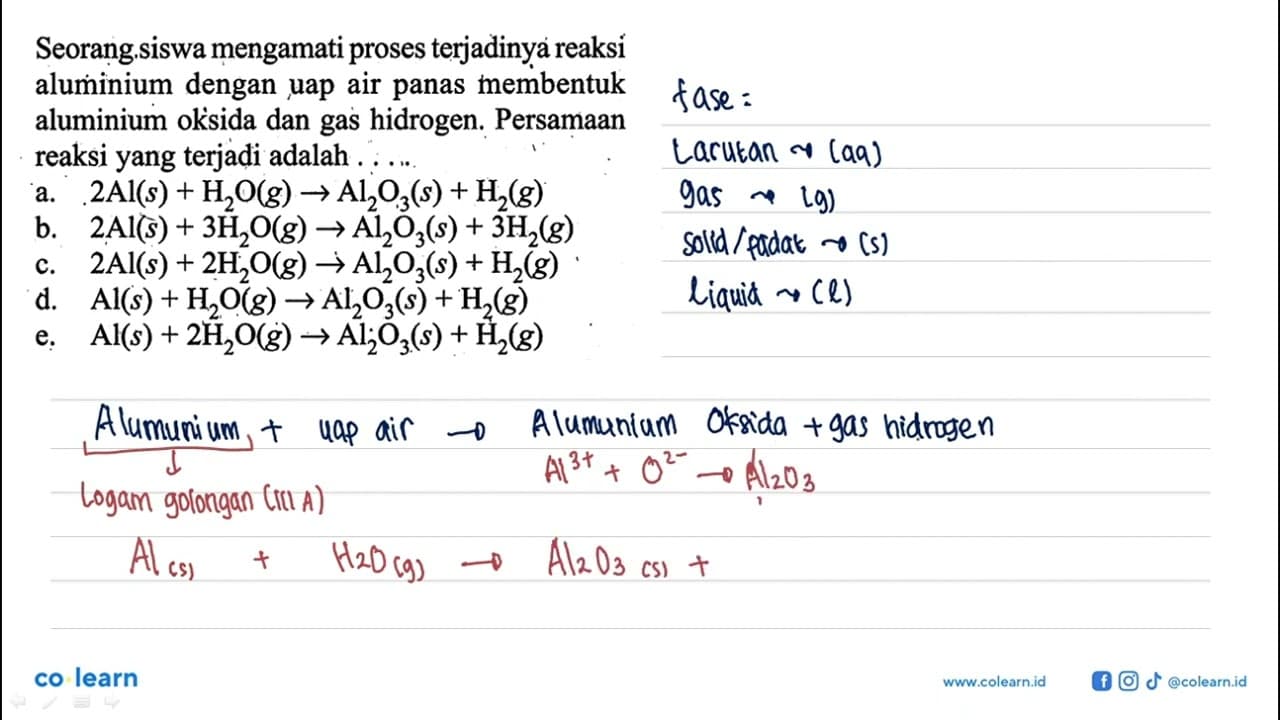 Seorang siswa mengamati proses terjadinya reaksi
aluminium dengan uap air panas membentuk
aluminium oksida dan gas hidrogen. Persamaan
reaksi yang terjadi adalah . . . . .
a. 2Al(s) + H₂O(g) → Al₂O₃(s) + H₂(g)
b. 2Al(s) + 3H₂O(g) → Al₂O₃(s) + 3H₂(g)
c. 2Al(s) + 2H₂O(g) → Al₂O₃(s) + H₂(g)
d. Al(s) + H₂O(g) → Al₂O₃(s) + H₂(g)
e. Al(s) + 2H₂O(g) → Al₂O₃(s) + H₂(g)
fase :
Larutan ~> (aq)
gas ~> (g)
solid/padat ~> (s)
Liquid ~> (l)
Alumunium + uap air → Alumunium Oksida + gas hidrogen
↓ Al³⁺ + O²⁻ → Al₂O₃
Logam golongan (III A)
Al (s) + H₂O (g) → Al₂O₃ (s) +
co learn
www.colearn.id
@colearn.id